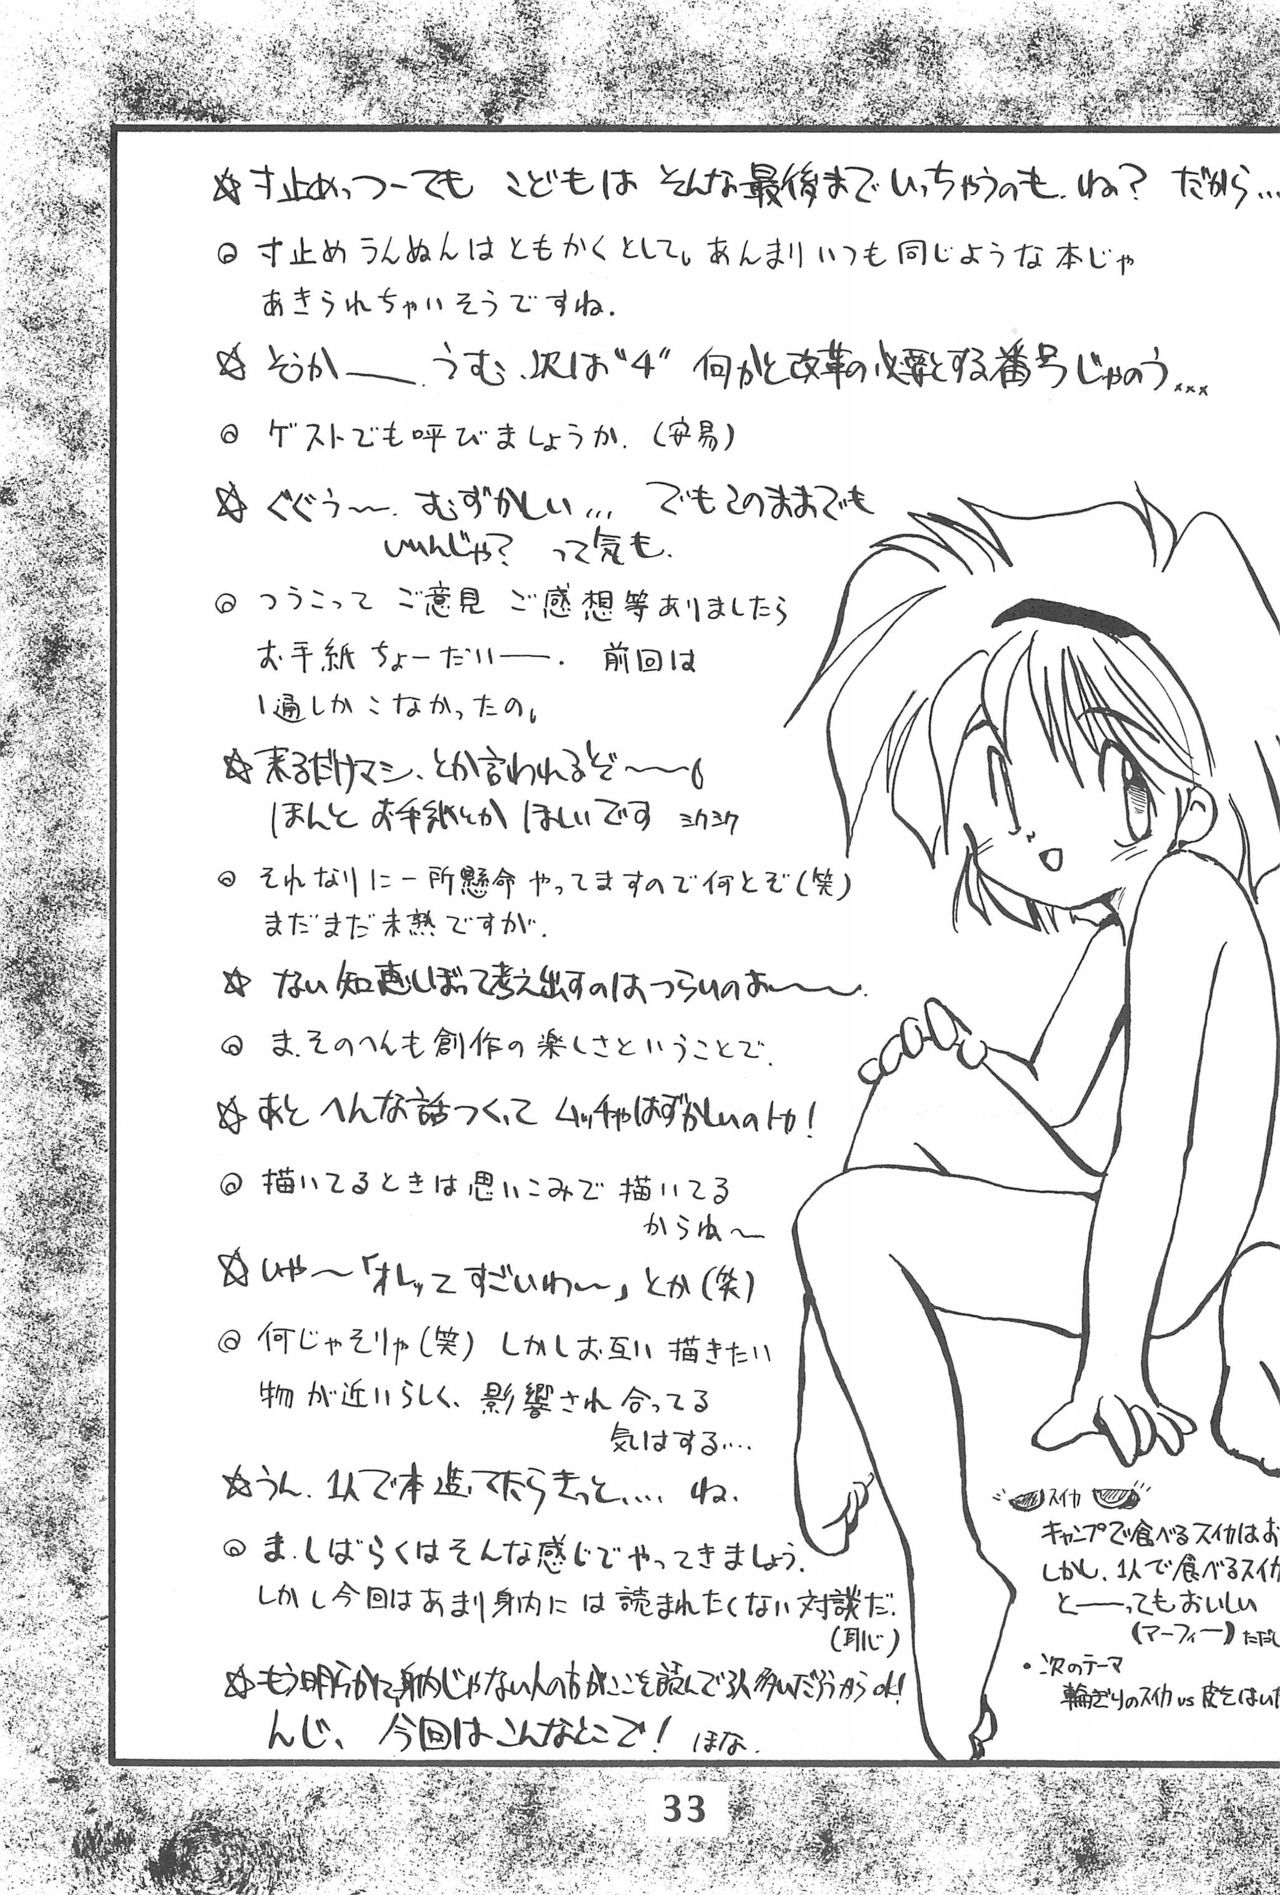 ☆ 寸止めっつーても こどもは そんな最後までいっちゃうのも、ね? だから…
◎ 寸止めうんぬんはともかくとして。あんまりいつも同じような本じゃ
あきられちゃいそうですね.
☆ そうかー. うむ、次は“4” 何かと改革の必要とする番号じゃのう...
◎ ゲストでも呼びましょうか.(安易)
☆ ぐぐう〜. むずかしい... でもこのままでも
いいんじゃ? って気も.
◎ つうこって ご意見 ご感想等ありましたら
お手紙ちょーだいー. 前回は
1通しかこなかったの。
☆ 来るだけマシ、とか言われるぞ〜〜。
ほんと お手紙とか ほしいです シクシク
◎ それなりに一所懸命やってますので何とぞ(笑)
まだまだ未熟ですが.
☆ ない知恵しぼって考え出すのはつらいのお〜〜.
◎ ま、そのへんも創作の楽しさということで.
☆ あと へんな話つくって ムッチャはずかしいのトカ!
◎ 描いてるときは思いこみで描いてる
からね〜
☆ いや〜「オレッて すごいわ〜」とか(笑)
◎ 何じゃそりゃ(笑) しかしお互い描きたい
物が近いらしく、影響され合ってる
気はする....
☆ うん、1人で本造ってたらきっと.... ね.
◎ ま、しばらくはそんな感じでやってきましょう.
しかし今回はあまり身内には読まれたくない対談だ.
(恥)
☆ もう明らかに身内じゃない人の方がここを読んでる人多いだろうからok!
んじ、今回はこんなとこで! ほな.
スイカ
キャンプで食べるスイカはお
しかし、1人で食べるスイカ
とーってもおいしい
(マーフィー) ただし
・次のテーマ
輪ぎりのスイカ vs 皮をはいだ
33